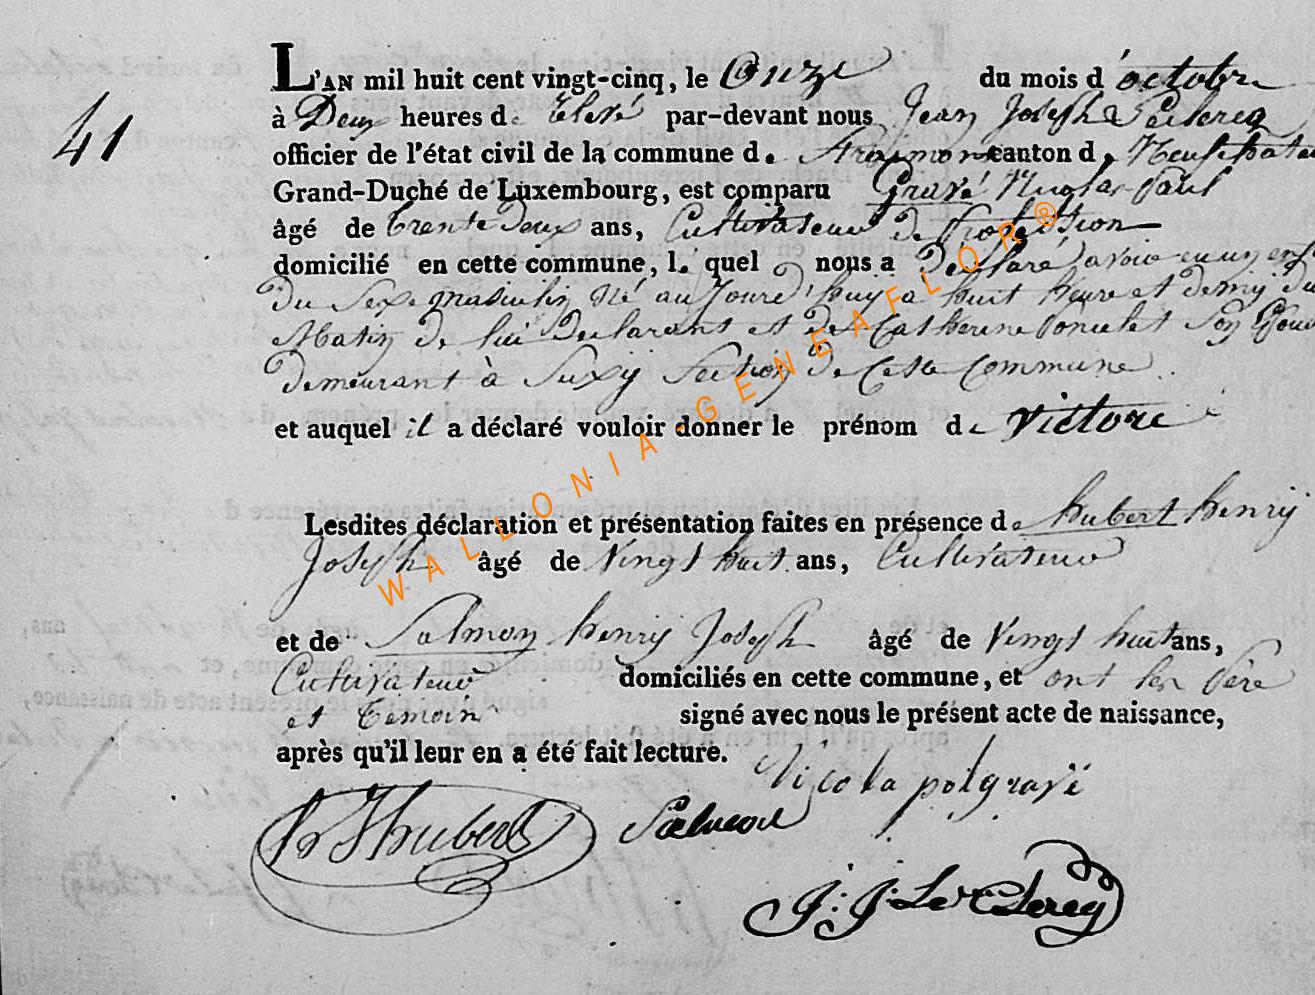 L'AN mil huit cent vingt-cinq, le Onze du mois d'octobre
41
à Deux heures de Relevé par-devant nous Jean Joseph Leclercq
officier de l'état civil de la commune de Straimont canton de Neufchatau
Grand-Duché de Luxembourg, est comparu Gravé Nicolas Paul
âgé de trente Deux ans, Cultivateur de Profession
domicilié en cette commune, lequel nous a Déclaré avoir eu un enf
Du Sexe masculin Né au Jourd'huy a huit heure et demy du
Matin de lui Declarant et de Catherine Poncelet Son Epouse
Demeurant à Suxy Section De Cette Commune
et auquel il a déclaré vouloir donner le prénom de Victore
Lesdites déclaration et présentation faites en présence de hubert henry
Joseph âgé de Vingt huit ans, Cultivateur
et de Salmon henry Joseph âgé de Vingt huit ans,
Cultivateur domiciliés en cette commune, et ont les Père
et temoin signé avec nous le présent acte de naissance,
après qu'il leur en a été fait lecture.
Nicola pol gravé
hJ hubert Salmon
J: J: Le Clercq
WALLONIA-GENEAFLOR®